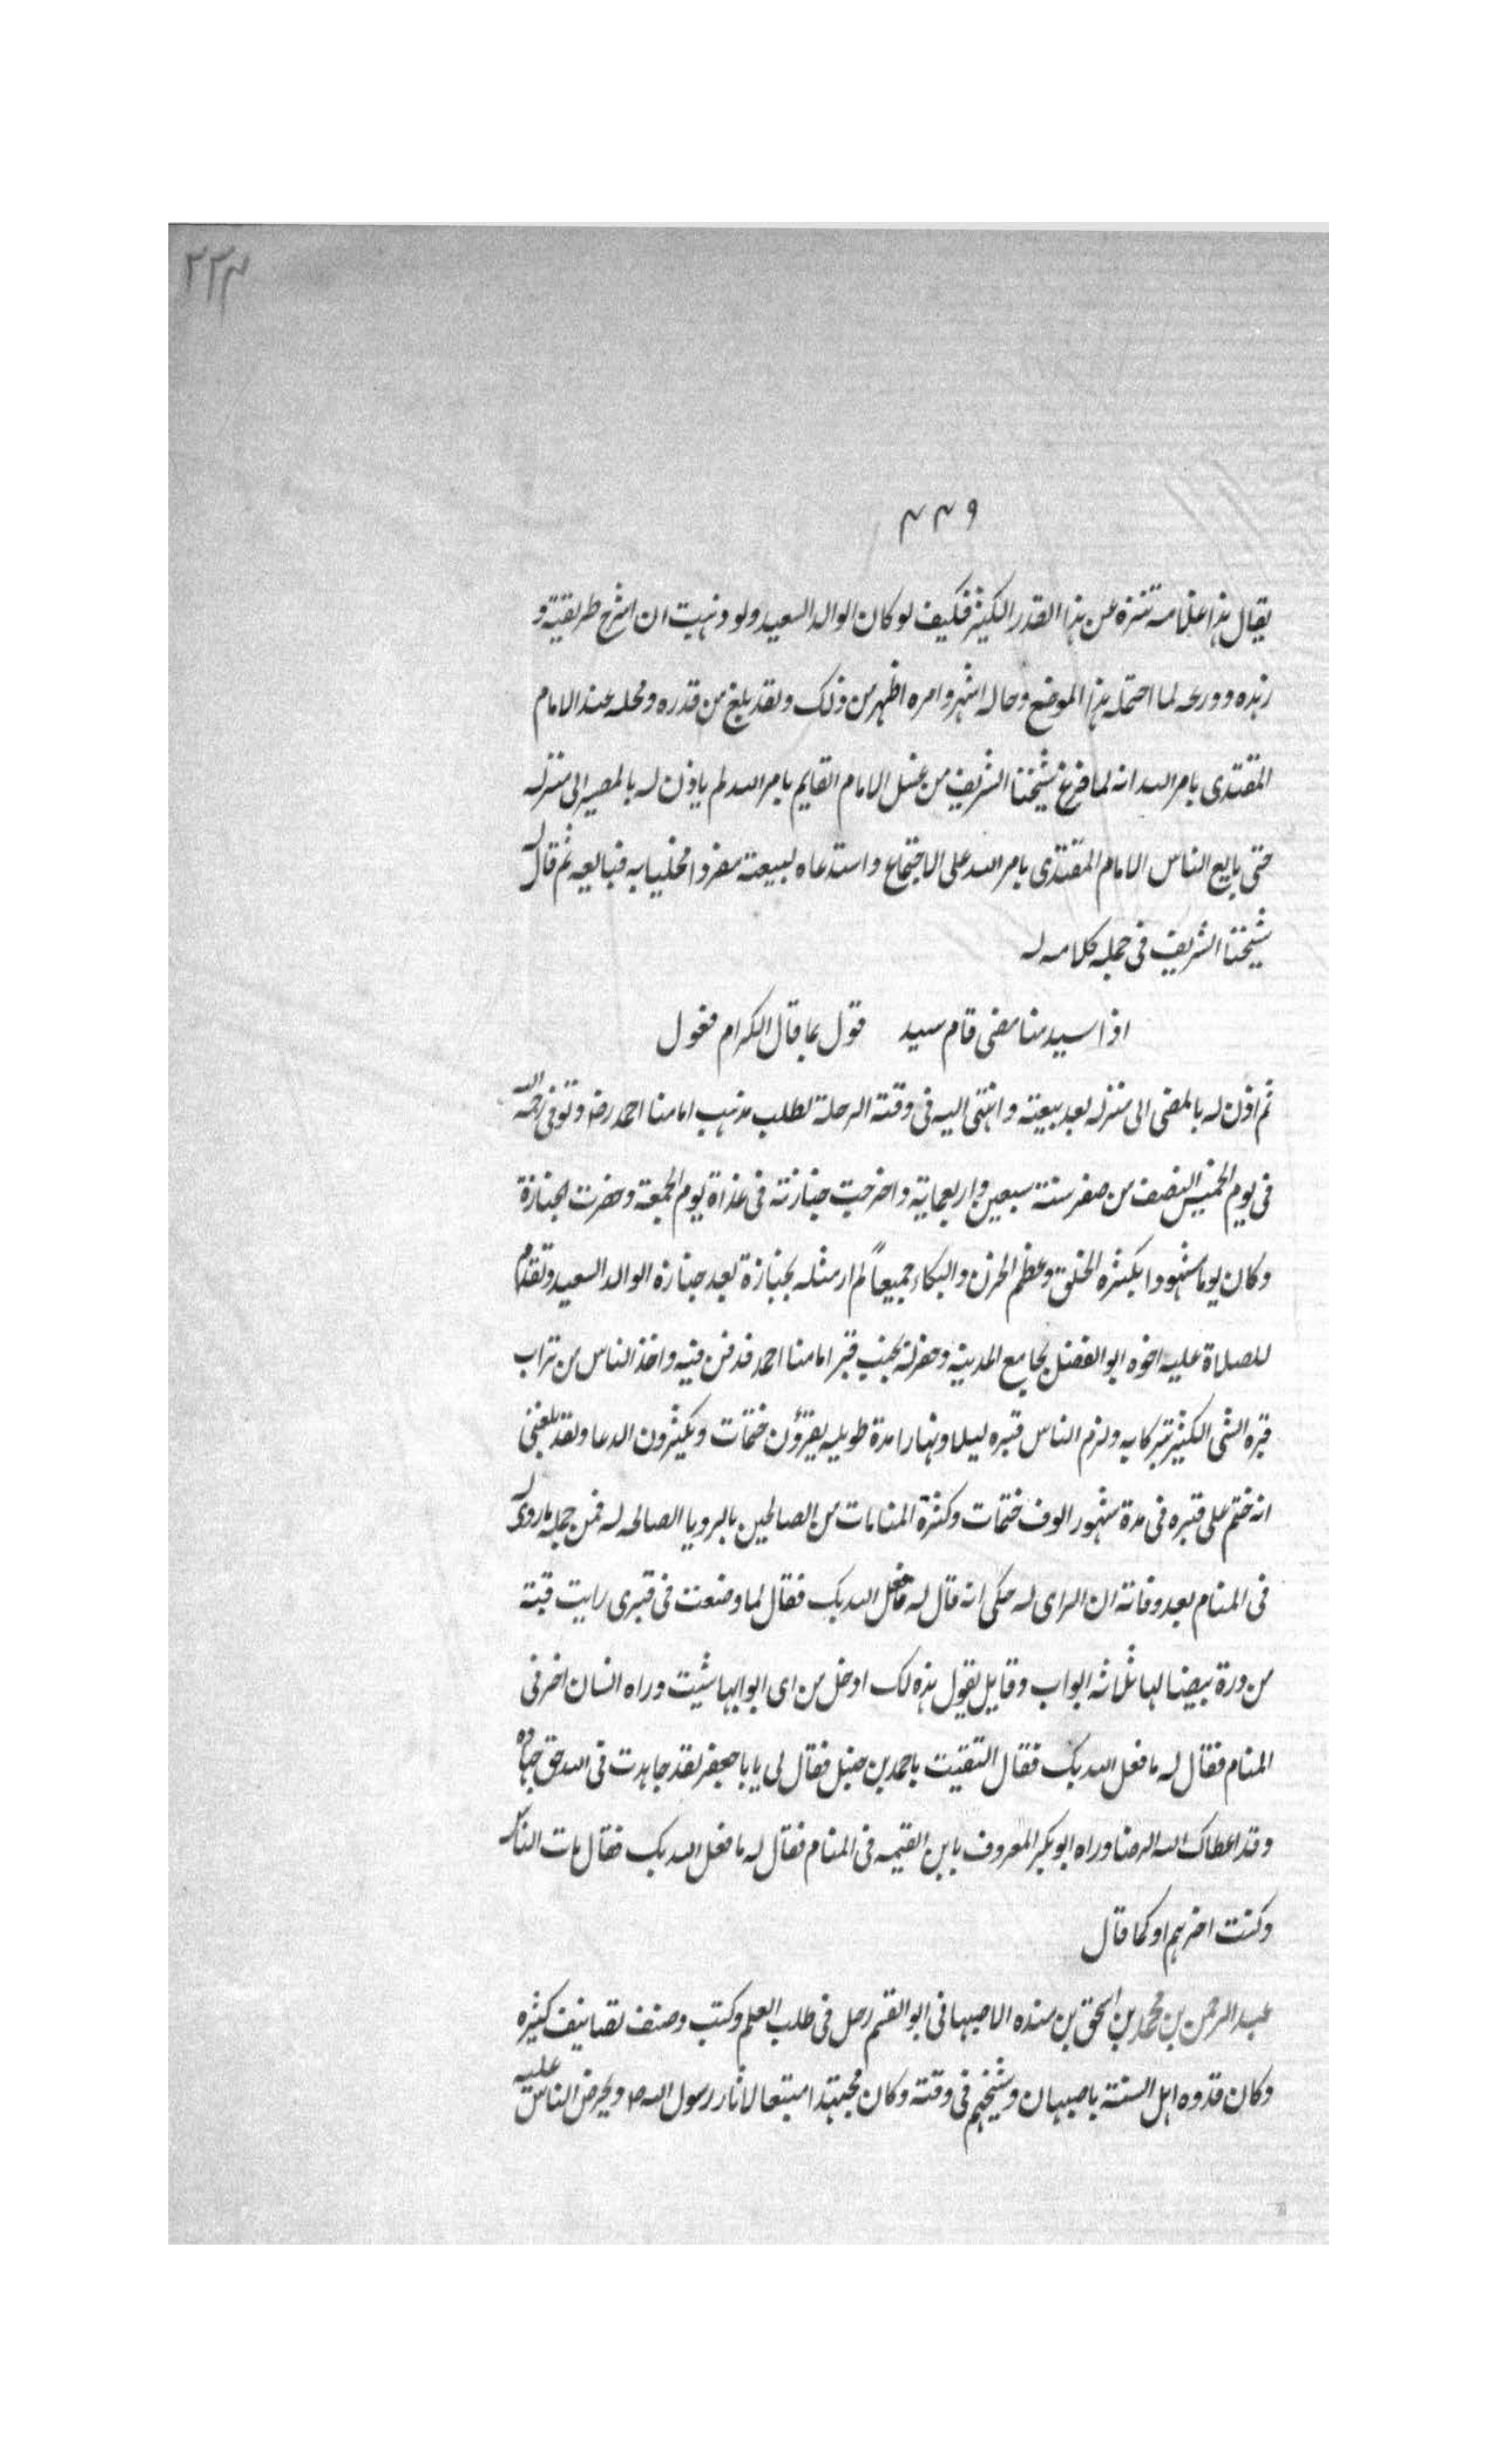 ٢٢٣
٤٤٩
يقال هذا غلامه تنزه عن هذا القدر الكثير فكيف لو كان الوالد السعيد ولو ذهبت ان اشرح طريقته و
زهده وورعه لما احتمله هذا الموضع وحاله اشهر وامره اظهر من ذلك ولقد بلغ من قدره ومحله عند الامام
المقتدى بامر الله انه لما فرغ شيخنا الشريف من غسل الامام القايم بامر الله لم ياذن له بالمصير الى منزله
حتى بايع الناس الامام المقتدى بامر الله على الاجتماع واستدعاه لبيعته مفردا مخليا به فبايعه ثم قال له
شيخنا الشريف فى جمله كلامه له
اذا سيد منا مضى قام سيد قول بما قال الكرام فعول
ثم اذن له بالمضى الى منزله بعد بيعته وانتهى اليه فى وقته الرحلة لطلب مذهب امامنا احمد رضه وتوفى رحمه الله
فى يوم الخميس النصف من صفر سنة سبعين واربعماية واخرجت جنازته فى غداة يوم الجمعة وحضرت الجنازة
وكان يوما مشهودا بكثره الخلق وعظم الحزن والبكاء جميعاً لم ار مثله بجنازة بعد جنازه الوالد السعيد وتقدم
للصلاة عليه اخوه ابو الفضل بجامع المدينه وحفر له بجنب قبر امامنا احمد فدفن فيه واخذ الناس من تراب
قبره الشى الكثير تبركا به ولزم الناس قبره ليلا ونهارا مدة طويله يقرؤن ختمات ويكثرون الدعا ولقد بلغنى
انه ختم على قبره فى مدة شهور الوف ختمات وكثرة المنامات من الصالحين بالرويا الصالحه له فمن جمله ما روى له
فى المنام بعد وفاته ان الراى له حكى انه قال له ما فعل الله بك فقال لما وضعت فى قبرى رايت قبة
من درة بيضا لها ثلاثه ابواب وقايل يقول هذه لك ادخل من اى ابوابها شئت وراه انسان اخر فى
المنام فقال له ما فعل الله بك فقال التقيت باحمد بن حنبل فقال لى يابا جعفر لقد جاهدت فى الله حق جهاده
وقد اعطاك الله الرضا وراه ابو بكر المعروف بابن القيمه فى المنام فقال له ما فعل الله بك فقال مات الناس
وكنت اخرهم او كما قال
عبد الرحمن بن محمد بن اسحق بن منده الاصبهانى ابو القسم رحل فى طلب العلم وكتب وصنف تصانيف كثيره
وكان قدوه اهل السنة باصبهان وشيخهم فى وقته وكان مجتهدا متبعا لاثار رسول الله ص ويحرض الناس عليه